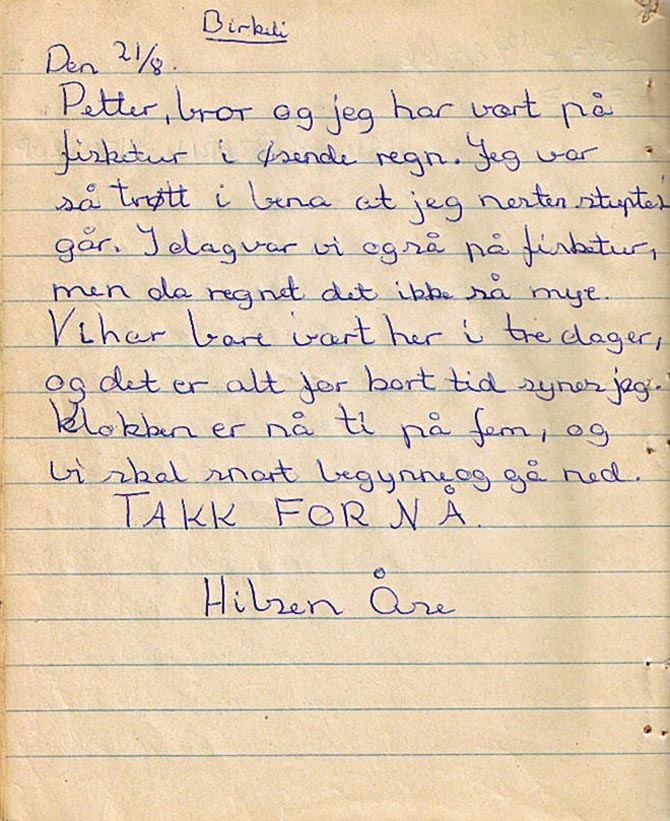 Birkeli
Den 21/8.
Petter, bror og jeg har vært på
fisketur i øsende regn. Jeg var
så trøtt i bena at jeg nesten stuptei
går. I dag var vi også på fisketur,
men da regnet det ikke så mye.
Vi har bare vært her i tre dager,
og det er alt for kort tid synes jeg.
Klokken er nå ti på fem, og
vi skal snart begynne og gå ned.
TAKK FOR NÅ.
Hilsen Åse